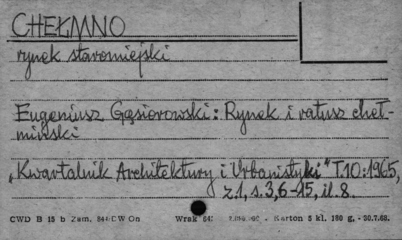 CHEŁMNO
rynek staromiejski
Eugeniusz Gąsiorowski: Rynek i ratusz cheł-
miński
„Kwartalnik Architektury i Urbanistyki" T.10:1965,
z.1, s.3,6-15, il.8.
CWD B 15 b Zam. CW Dn Wrak Karton 5 kl. 160 g. - 30.7.68.